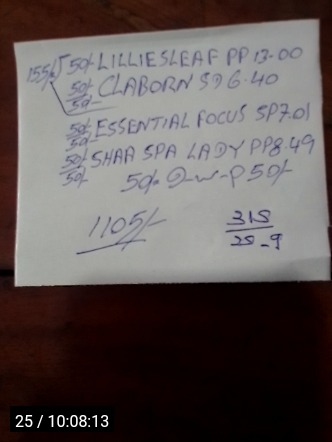 155/- 50/- LILLIESLEAF PP 13.00
50/- 50/- CLABORN 6.40
50/- 50/- ESSENTIAL FOCUS SP 7.01
50/- 50/- SHAA SPA LADY PP 8.49
50/- 50/-
1105/-
315
25-9
25 / 10:08:13